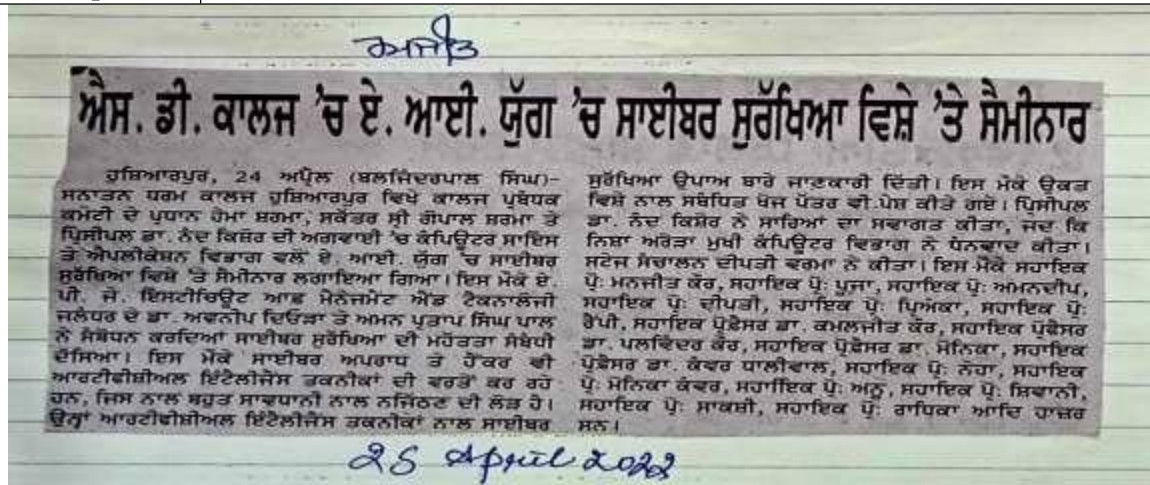 ਅਜੀਤ
ਐਸ. ਡੀ. ਕਾਲਜ 'ਚ ਏ. ਆਈ. ਯੁੱਗ 'ਚ ਸਾਈਬਰ ਸੁਰੱਖਿਆ ਵਿਸ਼ੇ 'ਤੇ ਸੈਮੀਨਾਰ
ਹੁਸ਼ਿਆਰਪੁਰ, 24 ਅਪ੍ਰੈਲ (ਬਲਜਿੰਦਰਪਾਲ ਸਿੰਘ)-
ਸਨਾਤਨ ਧਰਮ ਕਾਲਜ ਹੁਸ਼ਿਆਰਪੁਰ ਵਿਖੇ ਕਾਲਜ ਪ੍ਰਬੰਧਕ
ਕਮੇਟੀ ਦੇ ਪ੍ਰਧਾਨ ਹੇਮਾ ਸ਼ਰਮਾ, ਸਕੱਤਰ ਸ੍ਰੀ ਗੋਪਾਲ ਸ਼ਰਮਾ ਤੇ
ਪ੍ਰਿੰਸੀਪਲ ਡਾ. ਨੰਦ ਕਿਸ਼ੋਰ ਦੀ ਅਗਵਾਈ 'ਚ ਕੰਪਿਊਟਰ ਸਾਇੰਸ
ਤੇ ਐਪਲੀਕੇਸ਼ਨ ਵਿਭਾਗ ਵਲੋਂ ਏ. ਆਈ. ਯੁੱਗ 'ਚ ਸਾਈਬਰ
ਸੁਰੱਖਿਆ ਵਿਸ਼ੇ 'ਤੇ ਸੈਮੀਨਾਰ ਲਗਾਇਆ ਗਿਆ। ਇਸ ਮੌਕੇ ਏ.
ਪੀ. ਜੇ. ਇੰਸਟੀਚਿਊਟ ਆਫ਼ ਮੈਨੇਜਮੈਂਟ ਐਂਡ ਟੈਕਨਾਲੋਜੀ
ਜਲੰਧਰ ਦੇ ਡਾ. ਅਵਨੀਪ ਦਿਓੜਾ ਤੇ ਅਮਨ ਪ੍ਰਤਾਪ ਸਿੰਘ ਪਾਲ
ਨੇ ਸੰਬੋਧਨ ਕਰਦਿਆਂ ਸਾਈਬਰ ਸੁਰੱਖਿਆ ਦੀ ਮਹੱਤਤਾ ਸੰਬੰਧੀ
ਦੱਸਿਆ। ਇਸ ਮੌਕੇ ਸਾਈਬਰ ਅਪਰਾਧ ਤੇ ਹੈਂਕਰ ਵੀ
ਆਰਟੀਫੀਸ਼ੀਅਲ ਇੰਟੈਲੀਜੈਂਸ ਤਕਨੀਕਾਂ ਦੀ ਵਰਤੋਂ ਕਰ ਰਹੇ
ਹਨ, ਜਿਸ ਨਾਲ ਬਹੁਤ ਸਾਵਧਾਨੀ ਨਾਲ ਨਜਿੱਠਣ ਦੀ ਲੋੜ ਹੈ।
ਉਨ੍ਹਾਂ ਆਰਟੀਫੀਸ਼ੀਅਲ ਇੰਟੈਲੀਜੈਂਸ ਤਕਨੀਕਾਂ ਨਾਲ ਸਾਈਬਰ
ਸੁਰੱਖਿਆ ਉਪਾਅ ਬਾਰੇ ਜਾਣਕਾਰੀ ਦਿੱਤੀ। ਇਸ ਮੌਕੇ ਉਕਤ
ਵਿਸ਼ੇ ਨਾਲ ਸਬੰਧਿਤ ਖੋਜ ਪੱਤਰ ਵੀ ਪੇਸ਼ ਕੀਤੇ ਗਏ। ਪ੍ਰਿੰਸੀਪਲ
ਡਾ. ਨੰਦ ਕਿਸ਼ੋਰ ਨੇ ਸਾਰਿਆਂ ਦਾ ਸਵਾਗਤ ਕੀਤਾ, ਜਦ ਕਿ
ਨਿਸ਼ਾ ਅਰੋੜਾ ਮੁਖੀ ਕੰਪਿਊਟਰ ਵਿਭਾਗ ਨੇ ਧੰਨਵਾਦ ਕੀਤਾ।
ਸਟੇਜ ਸੰਚਾਲਨ ਦੀਪਤੀ ਵਰਮਾ ਨੇ ਕੀਤਾ। ਇਸ ਮੌਕੇ ਸਹਾਇਕ
ਪ੍ਰੋ: ਮਨਜੀਤ ਕੌਰ, ਸਹਾਇਕ ਪ੍ਰੋ: ਪੂਜਾ, ਸਹਾਇਕ ਪ੍ਰੋ: ਅਮਨਦੀਪ,
ਸਹਾਇਕ ਪ੍ਰੋ: ਦੀਪਤੀ, ਸਹਾਇਕ ਪ੍ਰੋ: ਪ੍ਰਿਅੰਕਾ, ਸਹਾਇਕ ਪ੍ਰੋ:
ਸਹਾਇਕ ਪ੍ਰੋਫੈਸਰ ਡਾ. ਕਮਲਜੀਤ ਕੌਰ, ਸਹਾਇਕ ਪ੍ਰੋਫੈਸਰ
ਡਾ. ਪਲਵਿੰਦਰ ਕੌਰ, ਸਹਾਇਕ ਪ੍ਰੋਫੈਸਰ ਡਾ. ਮੋਨਿਕਾ, ਸਹਾਇਕ
ਪ੍ਰੋਫੈਸਰ ਡਾ. ਕੰਵਰ ਧਾਲੀਵਾਲ, ਸਹਾਇਕ ਪ੍ਰੋ: ਨੇਹਾ, ਸਹਾਇਕ
ਪ੍ਰੋ: ਮੋਨਿਕਾ ਕੰਵਰ, ਸਹਾਇਕ ਪ੍ਰੋ: ਅਨੂ, ਸਹਾਇਕ ਪ੍ਰੋ: ਸ਼ਿਵਾਨੀ,
ਸਹਾਇਕ ਪ੍ਰੋ: ਸਾਕਸ਼ੀ, ਸਹਾਇਕ ਪ੍ਰੋ: ਰਾਧਿਕਾ ਆਦਿ ਹਾਜ਼ਰ
ਸਨ।
25 April 2022